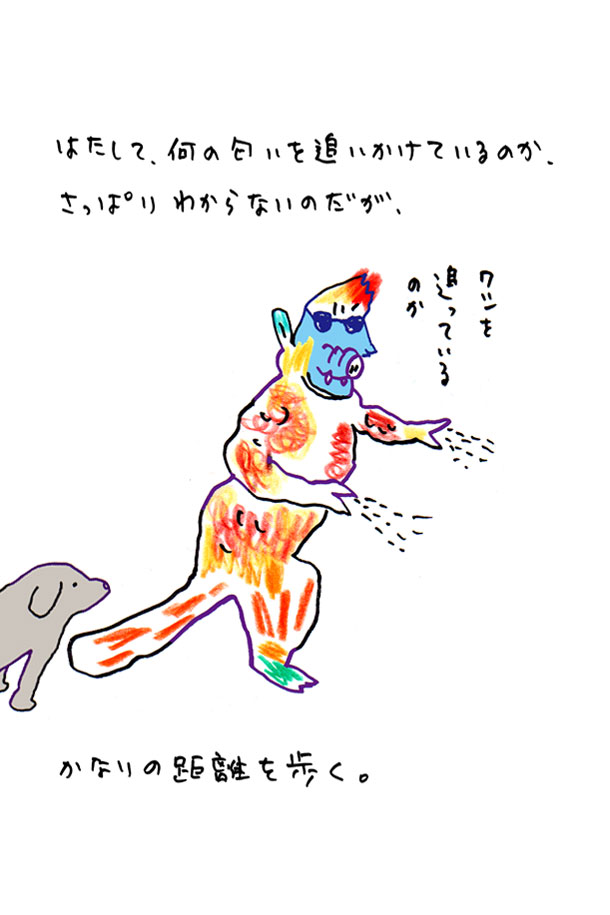 はたして、何の匂いを追いかけているのか、
さっぱり わからないのだが、
ワシを
追っている
のか
かなりの距離を歩く。